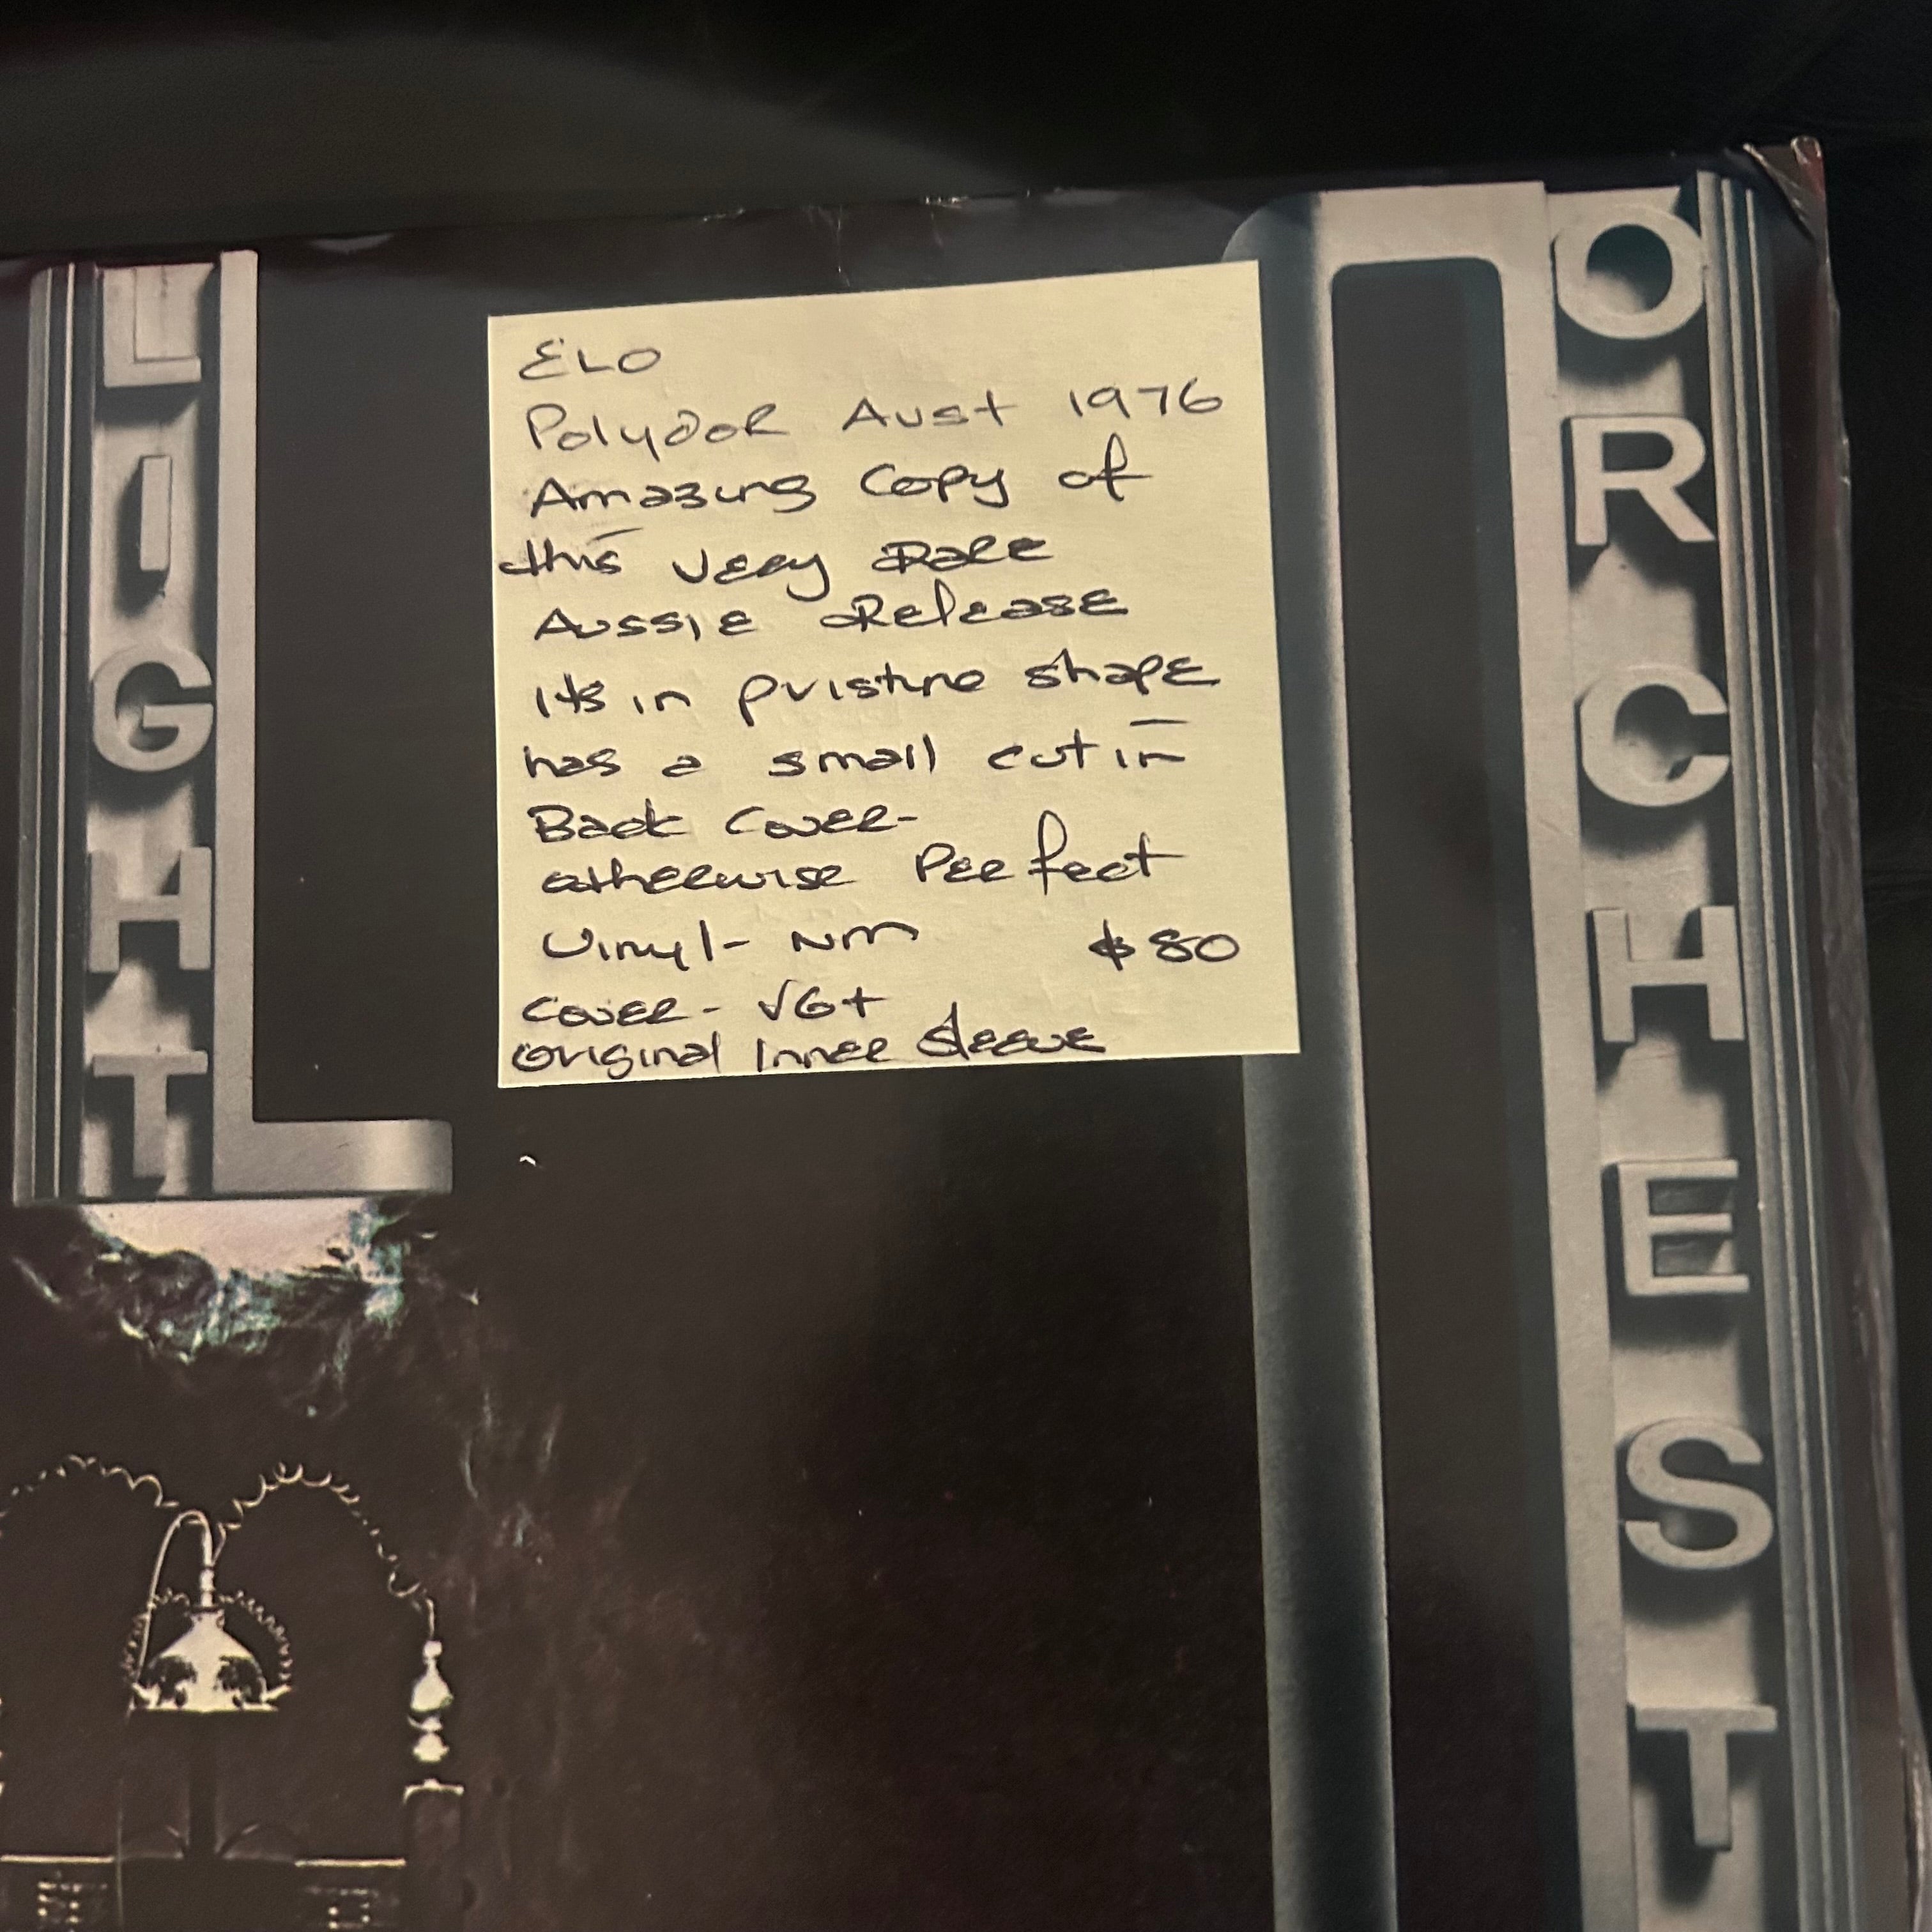 LIGHT
ELO
Polydor Aust 1976
Amazing Copy of
this very Rare
Aussie Release
its in pristine shape
has a small cut in
Back Cover-
otherwise Perfect
Vinyl- NM $80
Cover- VG+
original Inner Sleeve
ORCHEST